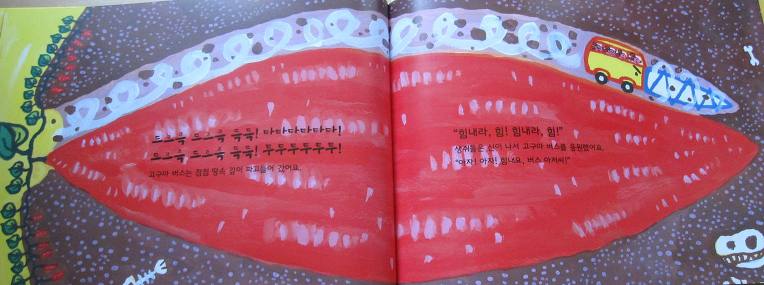 드르륵 드르륵 득득! 다다다다다다!
드르륵 드르륵 득득! 두두두두두두!
고구마 버스는 점점 땅속 깊이 파고들어 갔어요.
"힘내라, 힘! 힘내라, 힘!"
생쥐들은 신이 나서 고구마 버스를 응원했어요.
"아자! 아자! 힘내요, 버스 아저씨!"